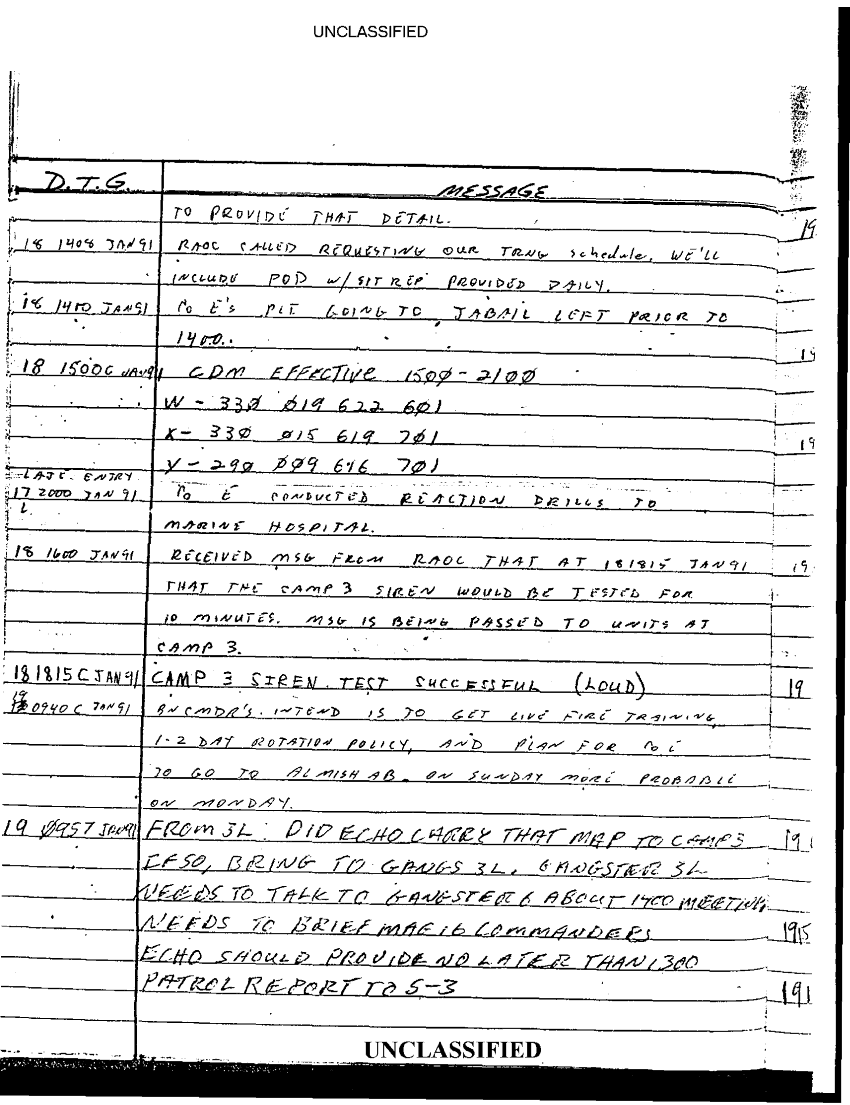 UNCLASSIFIED
D.T.G. MESSAGE
TO PROVIDE THAT DETAIL.
18 1408 JAN 91 RAOC CALLED REQUESTING OUR TRNG schedule. WE'LL
INCLUDE POD W/SITREP PROVIDED DAILY.
18 1410 JAN91 Co E's PLT GOING TO JABAIL LEFT PRIOR TO
1400.
18 1500C JAN91 CDM EFFECTIVE 15ØØ-21ØØ
W - 33Ø Ø19 622 6Ø1
X - 33Ø Ø15 619 7Ø1
Y - 29Ø ØØ9 616 7Ø1
LATE ENTRY
17 2000 JAN 91 Co E CONDUCTED REACTION DRILLS TO
L.
MARINE HOSPITAL.
18 1600 JAN91 RECEIVED MSG FROM RAOC THAT AT 181815 JAN91
THAT THE CAMP 3 SIREN WOULD BE TESTED FOR
10 MINUTES. MSG IS BEING PASSED TO UNITS AT
CAMP 3.
181815C JAN 91 CAMP 3 SIREN TEST SUCCESSFUL (LOUD)
19
0940C JAN91 BN CMDR'S INTEND IS TO GET LIVE FIRE TRAINING,
1-2 DAY ROTATION POLICY, AND PLAN FOR Co E
TO GO TO ALMISHAB ON SUNDAY MORE PROBABLE
ON MONDAY.
19 Ø957 JAN91 FROM 3L: DID ECHO CARRY THAT MAP TO CAMP3
IF SO, BRING TO GANGS 3L. GANGSTER 3L
NEEDS TO TALK TO GANGSTER 6 ABOUT 1400 MEETING,
NEEDS TO BRIEF MAG 16 COMMANDERS
ECHO SHOULD PROVIDE NO LATER THAN 1300
PATROL REPORT TO S-3
UNCLASSIFIED